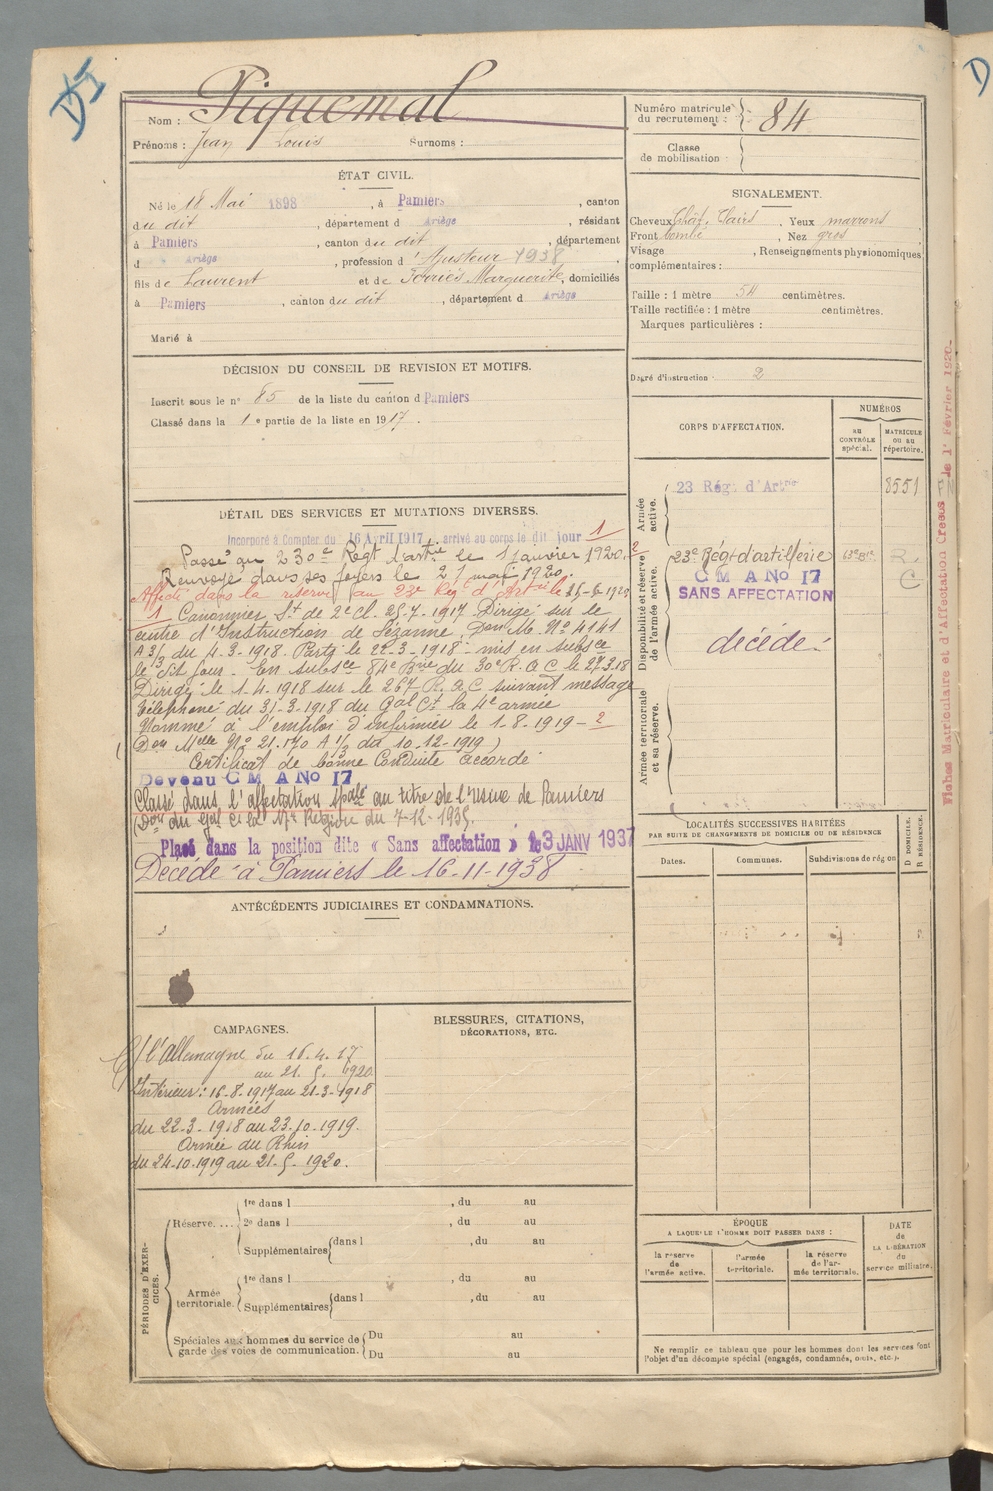 Nom : Piquemal
Prénoms : Jean Louis Surnoms :
Numéro matricule du recrutement : 84
Classe de mobilisation :
ÉTAT CIVIL.
Né le 18 Mai 1898, à Pamiers, canton
du dit, département d Ariège, résidant
à Pamiers, canton du dit, département
d Ariège, profession d'Ajusteur 1938
fils de Laurent et de Marguerite, domiciliés
à Pamiers, canton du dit, département d Ariège
Marié à
SIGNALEMENT.
Cheveux Chât. Clairs, Yeux marrons
Front bombé, Nez gros
Visage , Renseignements physionomiques
complémentaires :
Taille : 1 mètre 54 centimètres.
Taille rectifiée : 1 mètre centimètres.
Marques particulières :
Degré d'instruction : 2
DÉCISION DU CONSEIL DE REVISION ET MOTIFS.
Inscrit sous le n° 85 de la liste du canton d Pamiers
Classé dans la 1e partie de la liste en 1917.
CORPS D'AFFECTATION.
NUMÉROS
au CONTRÔLE spécial.
MATRICULE ou au répertoire.
Armée active.
23 Rég. d'Artrie 8551
Disponibilité et réserve de l'armée active.
23e Régt d'artillerie R.
C
C M A No 17
SANS AFFECTATION
décédé.
Armée territoriale et sa réserve.
DÉTAIL DES SERVICES ET MUTATIONS DIVERSES.
Incorporé à Compter du 16 Avril 1917, arrivé au corps le dit jour 1
Passé au 230e Regt d'artie le 1 janvier 1920. 2
Renvoyé dans ses foyers le 21 mai 1920.
Affecté dans la réserve au 23e Rég d'Artrie le 25-6-1920
1 Canonnier St de 2e Cl. 25-7-1917 Dirigé sur le
centre d'Instruction de Sézanne, Don M. No 4141
A 3/3 du 4-3-1918. Parti le 22-3-1918 - mis en subsce
le dit jour. En subsce 84e Brie du 30e R.A.C le 27.3.18
Dirigé le 1-4-1918 sur le 267 R.A.C suivant message
téléphoné du 31-3-1918 du Gal Ct la 4e armée
Nommé à l'emploi d'infirmier le 1-8-1919 - 2
(Don Melle No 21.170 A 1/2 du 10-12-1919)
Certificat de bonne Conduite accordé
Devenu C M A No 17
Classé dans l'affectation spale au titre de l'usine de Pamiers
(Don du Gal Ct la 17e Région du 7-12-1935.
Placé dans la position dite « Sans affectation » le 3 JANV 1937
Décédé à Pamiers le 16-11-1938
ANTÉCÉDENTS JUDICIAIRES ET CONDAMNATIONS.
LOCALITÉS SUCCESSIVES HABITÉES
PAR SUITE DE CHANGEMENTS DE DOMICILE OU DE RÉSIDENCE
Dates. Communes. Subdivisions de région
D DOMICILE. R RÉSIDENCE.
CAMPAGNES.
C/ l'Allemagne du 16.4.17
au 21.5.1920
Intérieur : 16-8-1917 au 21-3-1918
Armées
du 22-3-1918 au 23.10-1919.
Armée du Rhin
du 24-10-1919 au 21-5-1920.
BLESSURES, CITATIONS,
DÉCORATIONS, ETC.
PÉRIODES D'EXERCICES.
Réserve....
1re dans l , du au
2e dans l , du au
Supplémentaires dans l , du au
Armée territoriale.
1re dans l , du au
Supplémentaires dans l , du au
Spéciales aux hommes du service de garde des voies de communication.
Du au
Du au
ÉPOQUE
A LAQUELLE L'HOMME DOIT PASSER DANS :
la réserve de l'armée active.
l'armée territoriale.
la réserve de l'armée territoriale.
DATE de LA LIBÉRATION du service militaire.
Ne remplir ce tableau que pour les hommes dont les services font
l'objet d'un décompte spécial (engagés, condamnés, omis, etc.).
Fiches Matriculaire et d'Affectation Creées le 1er Février 1920.